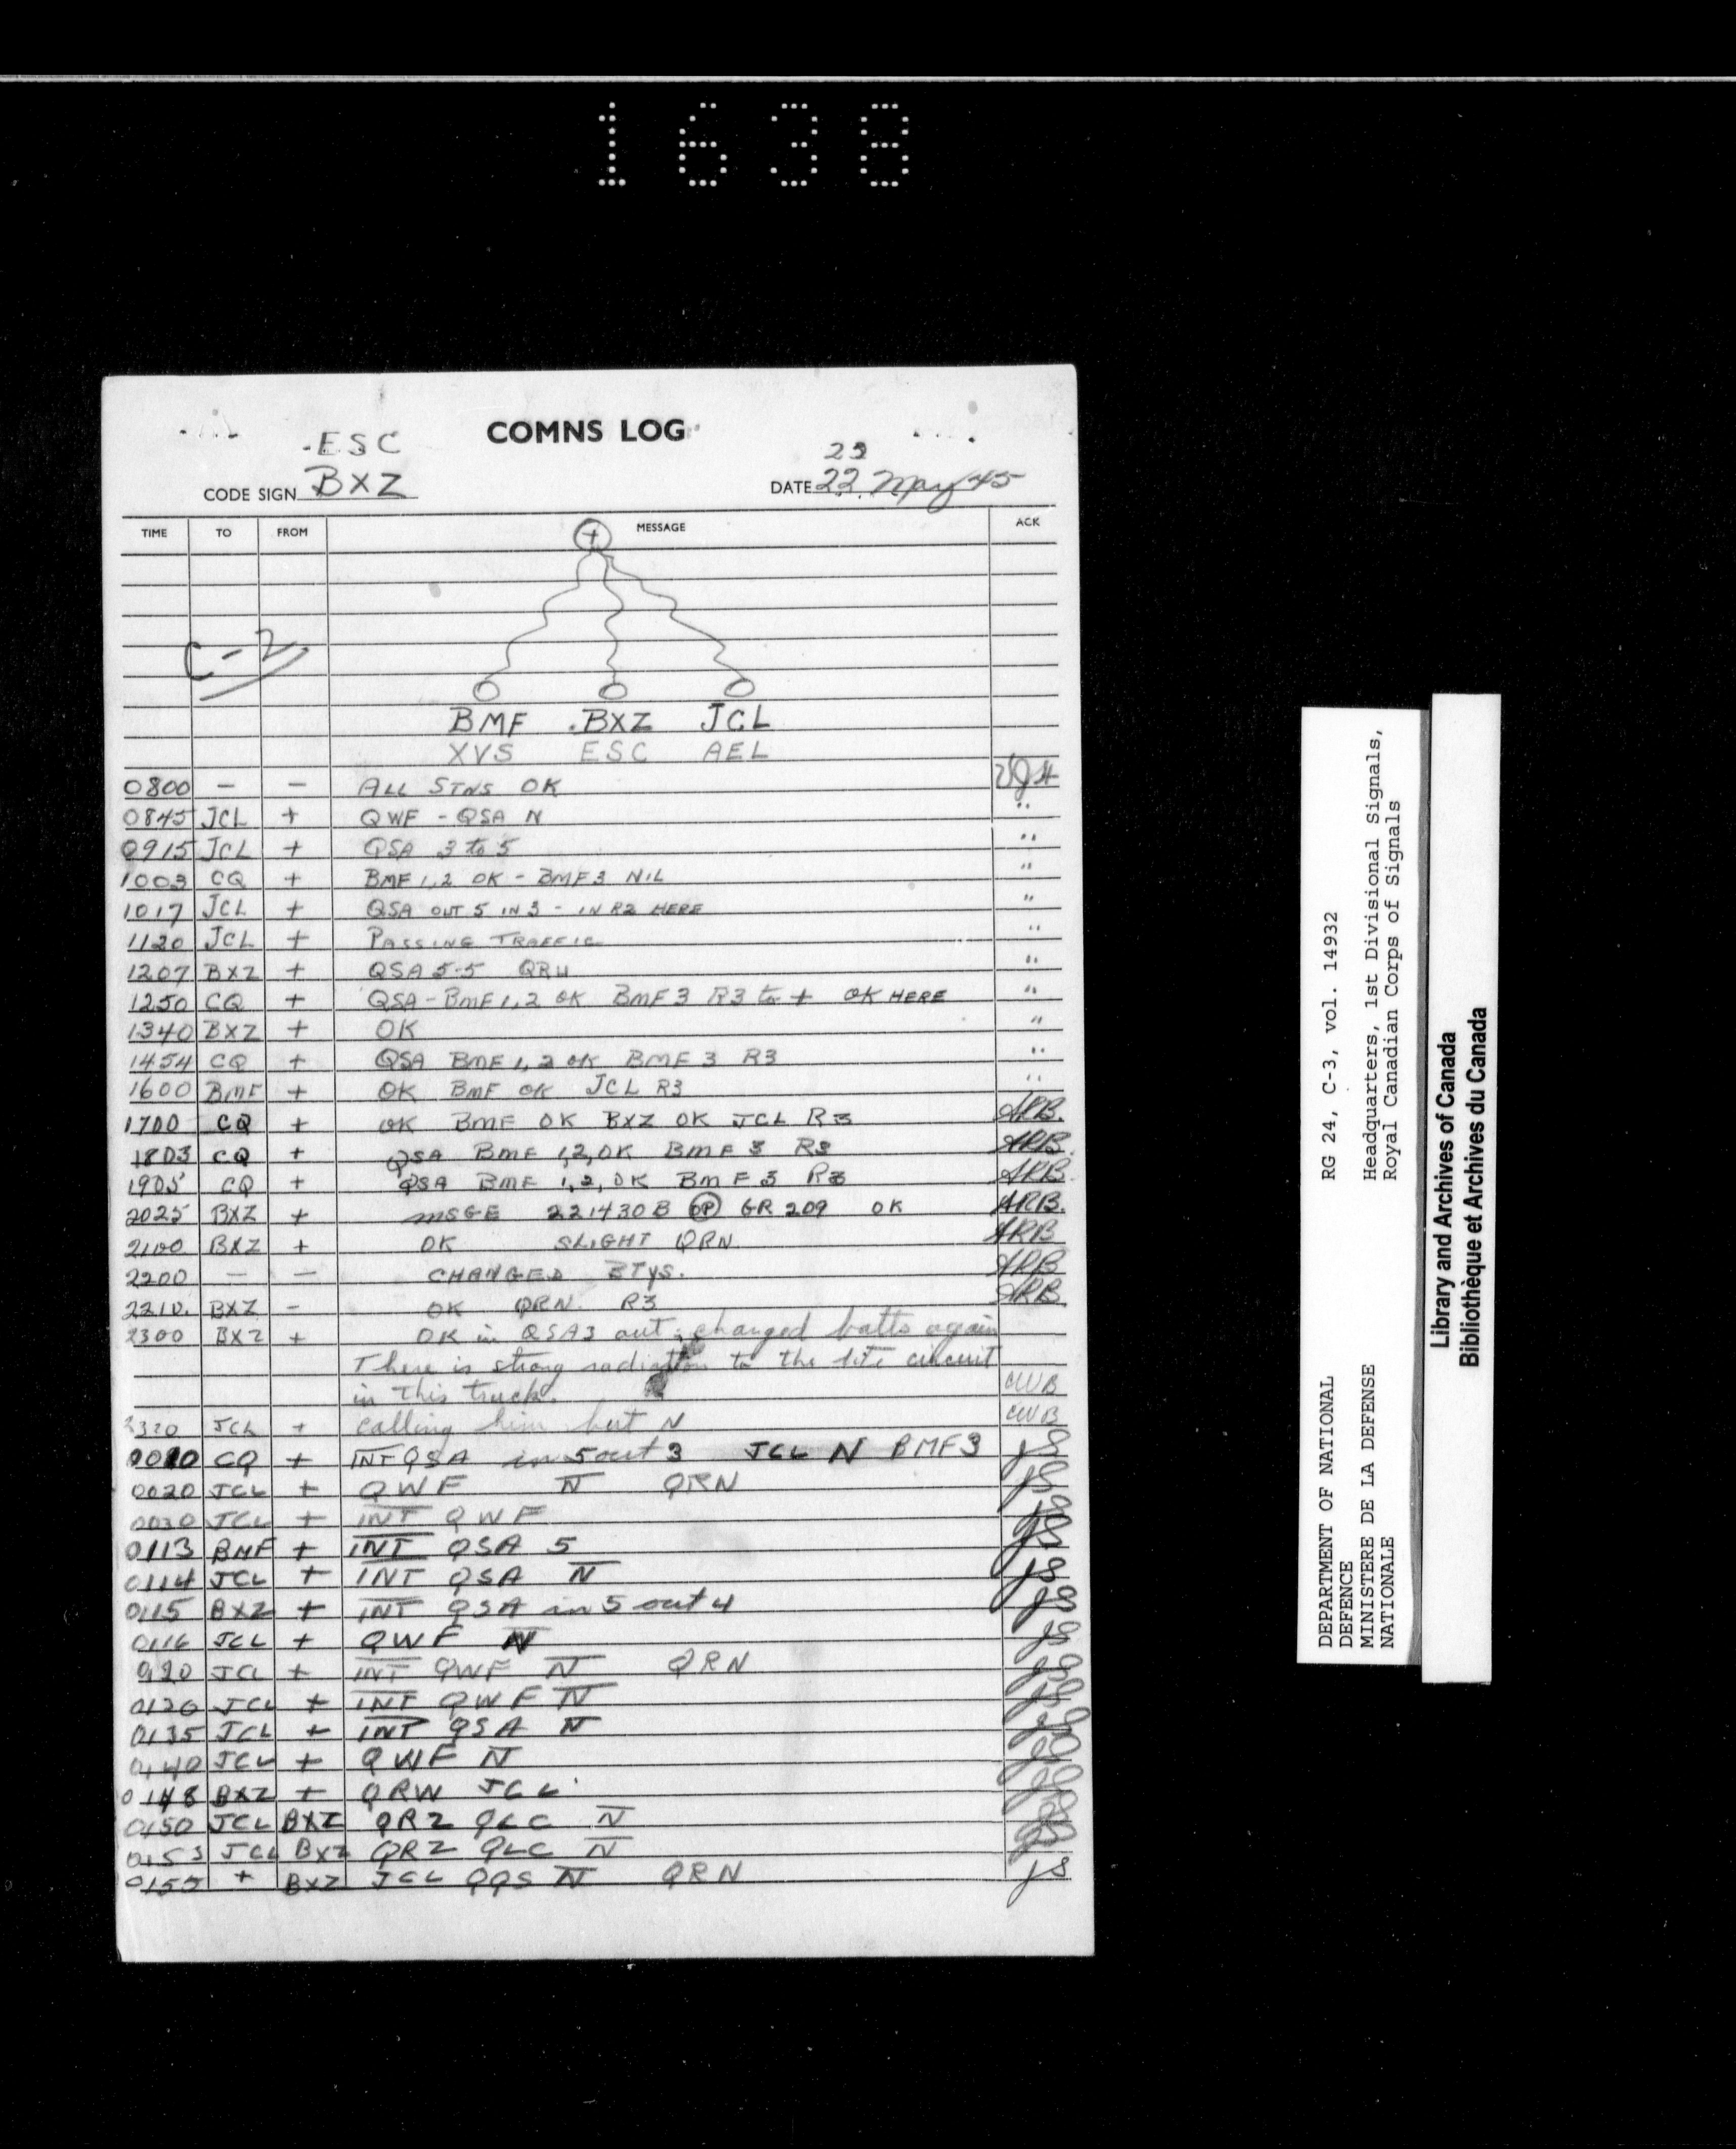 1638
COMNS LOG
ESC
CODE SIGN BXZ
23
DATE 22 May 45
TIME TO FROM MESSAGE ACK
+
C-2
BMF BXZ JCL
XVS ESC AEL
0800 - - ALL STNS OK
0845 JCL + QWF - QSA N "
0915 JCL + QSA 3 to 5 "
1003 CQ + BMF 1,2 OK - BMF 3 NIL "
1017 JCL + QSA OUT 5 IN 3 - IN R2 HERE "
1120 JCL + PASSING TRAFFIC "
1207 BXZ + QSA 5-5 QRU "
1250 CQ + QSA - BMF 1,2 OK BMF 3 R3 to + OK HERE "
1340 BXZ + OK "
1454 CQ + QSA BMF 1,2 OK BMF 3 R3 "
1600 BMF + OK BMF OK JCL R3 "
1700 CQ + OK BMF OK BXZ OK JCL R3 ARB.
1803 CQ + QSA BMF 1,2, OK BMF 3 R3 ARB.
1905 CQ + QSA BMF 1,2, OK BMF 3 R3 ARB
2025 BXZ + MSGE 221430B OP GR 209 OK ARB.
2100 BXZ + OK SLIGHT QRN ARB
2200 - - CHANGED BTYS. ARB
2210. BXZ - OK QRN R3 ARB.
2300 BXZ + OK in QSA3 out; changed batts again
There is strong radiation to the lite circuit
in this truck. CWB
2320 JCL + calling him but N CWB
0010 CQ + INT QSA in 5 out 3 JCL N BMF3 JS
0020 JCL + QWF N QRN JS
0030 JCL + INT QWF JS
0113 BMF + INT QSA 5 JS
0114 JCL + INT QSA N JS
0115 BXZ + INT QSA in 5 out 4 JS
0116 JCL + QWF N JS
0120 JCL + INT QWF N QRN JS
0126 JCL + INT QWF N JS
0135 JCL + INT QSA N JS
0140 JCL + QWF N JS
0148 BXZ + QRW JCL JS
0150 JCL BXZ QRZ QLC N JS
0153 JCL BXZ QRZ QLC N JS
0155 + BXZ JCL QQS N QRN JS
DEPARTMENT OF NATIONAL
DEFENCE
MINISTERE DE LA DEFENSE
NATIONALE
RG 24, C-3, vol. 14932
Headquarters, 1st Divisional Signals,
Royal Canadian Corps of Signals
Library and Archives of Canada
Bibliothèque et Archives du Canada